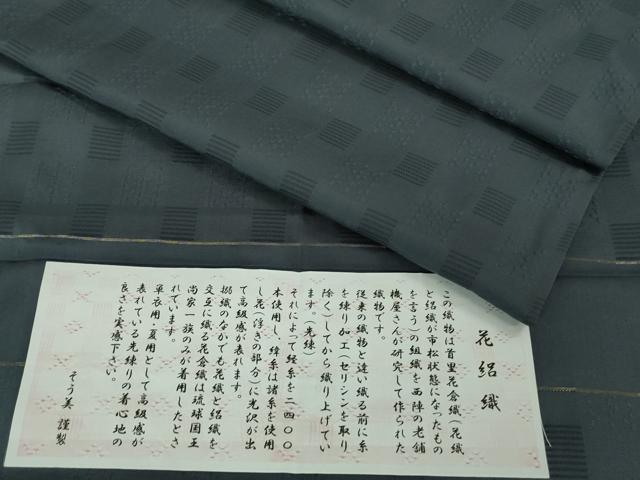 花絽織
この織物は首里花倉織(花織
と絽織が市松状態になったもの
を言う)の組織を西陣の老舗
機屋さんが研究して作られた
織物です。
従来の織物と違い織る前に糸
を練り加工(セリシンを取り
除く)してから織り上げてい
ます。(先練)
それによって経糸を二四〇〇
本使用し、緯糸は諸糸を使用
し花(浮きの部分)に光沢が出
て高級感が表れます。
搦織のなかでも花織と絽織を
交互に織る花倉織は琉球国王
尚家一族のみが着用したとさ
れています。
単衣用・夏用として高級感が
表れている先練りの着心地の
良さを実感下さい。
そう美 謹製